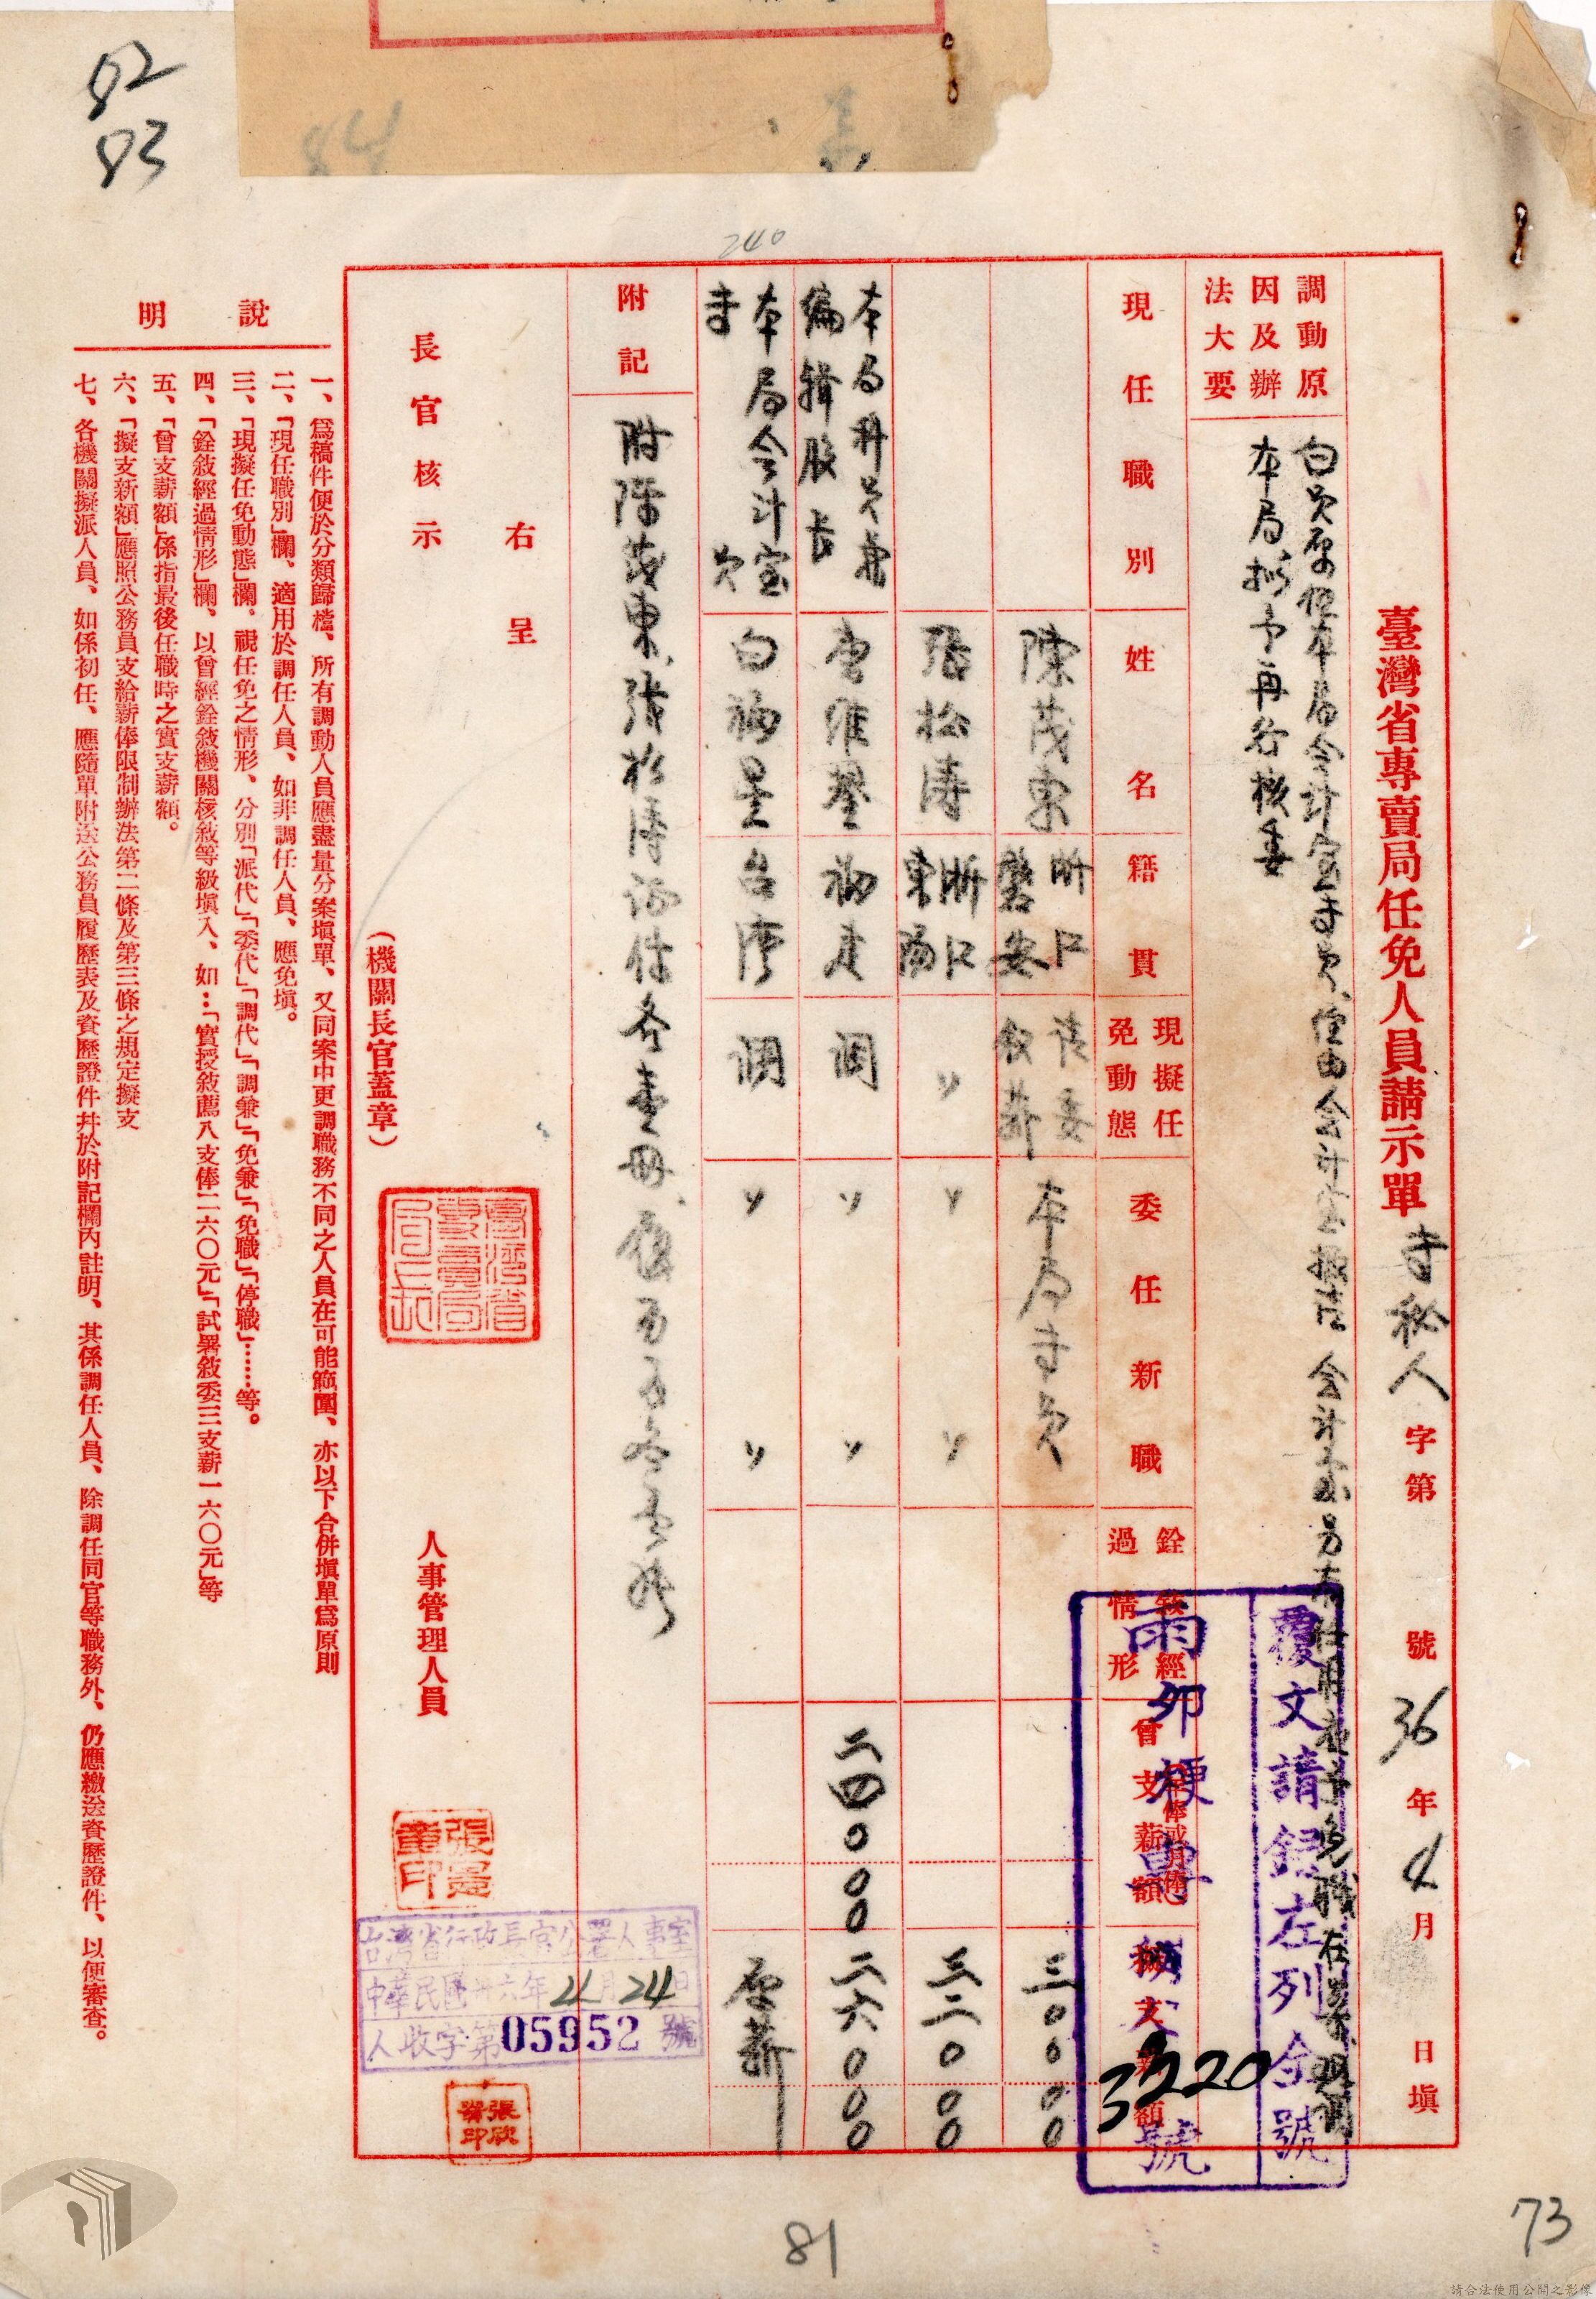 82
83
84
240
臺灣省專賣局任免人員請示單 專秘人字第 號 36年4月 日塡
調動原因及辦法大要
白員原任本局會計室專員 經由會計室 會計 另有任用 免職在案 現調
本局擬予再行核委
現任職別
姓名
籍貫
現擬任免動態
委任新職
銓敘經過情形
曾支薪額
擬支新額
陳茂東 浙江磐安 請委敘薪 本局專員 三〇〇〇〇
張松濤 浙江東陽 〃 〃 〃 三二〇〇〇
本局科員兼編輯股長 福建 調 〃 〃 二四〇〇〇 二六〇〇〇
本局會計室專員 白福星 台灣 調 〃 〃 原薪
附記
附陳茂東、張松濤證件各壹冊
右呈
長官核示
(機關長官蓋章)
人事管理人員
臺灣省專賣局局長印
台灣省行政長官公署人事室
中華民國卅六年4月24日
人收字第05952號
覆文請錄左列全號
3220
號
說明
一、爲稿件便於分類歸檔、所有調動人員應盡量分案塡單、又同案中更調職務不同之人員在可能範圍、亦以下合併塡單爲原則
二、「現任職別」欄、適用於調任人員、如非調任人員、應免塡。
三、「現擬任免動態」欄。視任免之情形、分別「派代」「委代」「調代」「調兼」「免兼」「免職」「停職」……等。
四、「銓敘經過情形」欄、以曾經銓敘機關核敘等級塡入、如…「實授敘薦八支俸二六〇元」「試署敘委三支薪一六〇元」等
五、「曾支薪額」係指最後任職時之實支薪額。
六、「擬支新額」應照公務員支給薪俸限制辦法第二條及第三條之規定擬支
七、各機關擬派人員、如係初任、應隨單附送公務員履歷表及資歷證件幷於附記欄內註明、其係調任人員、除調任同官等職務外、仍應繳送資歷證件、以便審查。
81
73
請合法使用公開之影像